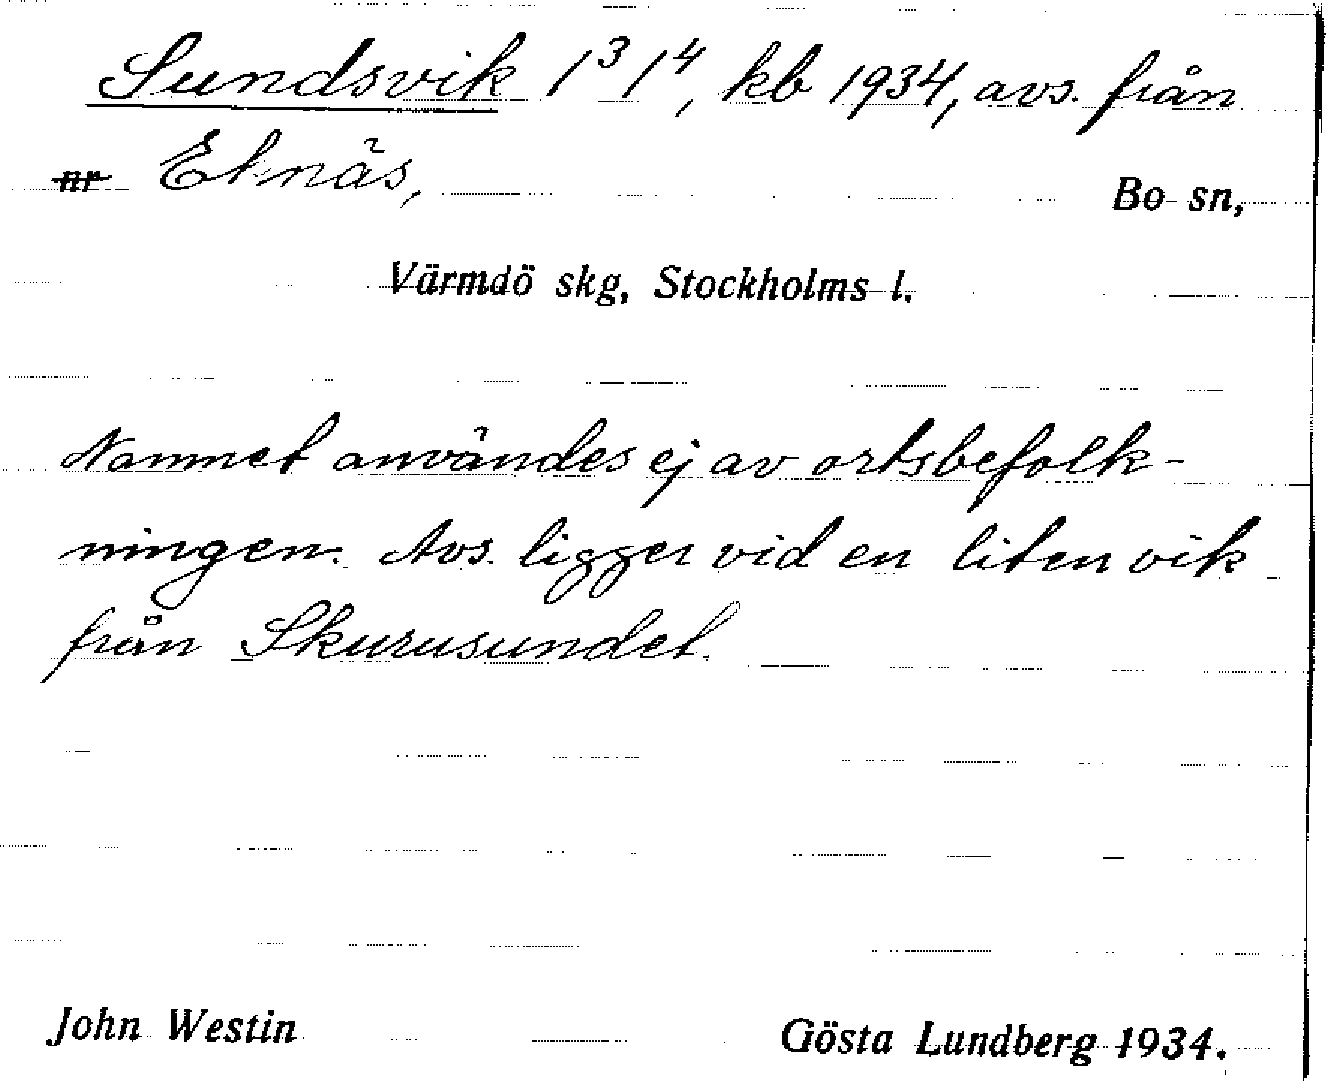 Sundsvik 1³ 1⁴, kb 1934, avs. från
nr Eknäs, Bo sn,
Värmdö skg, Stockholms l.
Namnet användes ej av ortsbefolk-
ningen. Avs. ligger vid en liten vik
från Skurusundet.
John Westin Gösta Lundberg 1934.